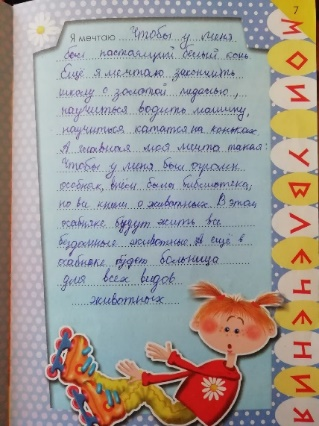 Я мечтаю Чтобы у меня
был настоящий белый конь
Ещё я мечтаю закончить
школу с золотой медалью,
научиться водить машину,
научиться кататся на коньках.
А главная моя мечта такая:
Чтобы у меня был огромн
особняк, в нём была библиотека,
но вв книги о животных. В этом
особняке будут жить все
бездомные животные. А ещё в
особняке будет больница
для всех видов
животных
7
МОИ УВЛЕЧЕНИЯ